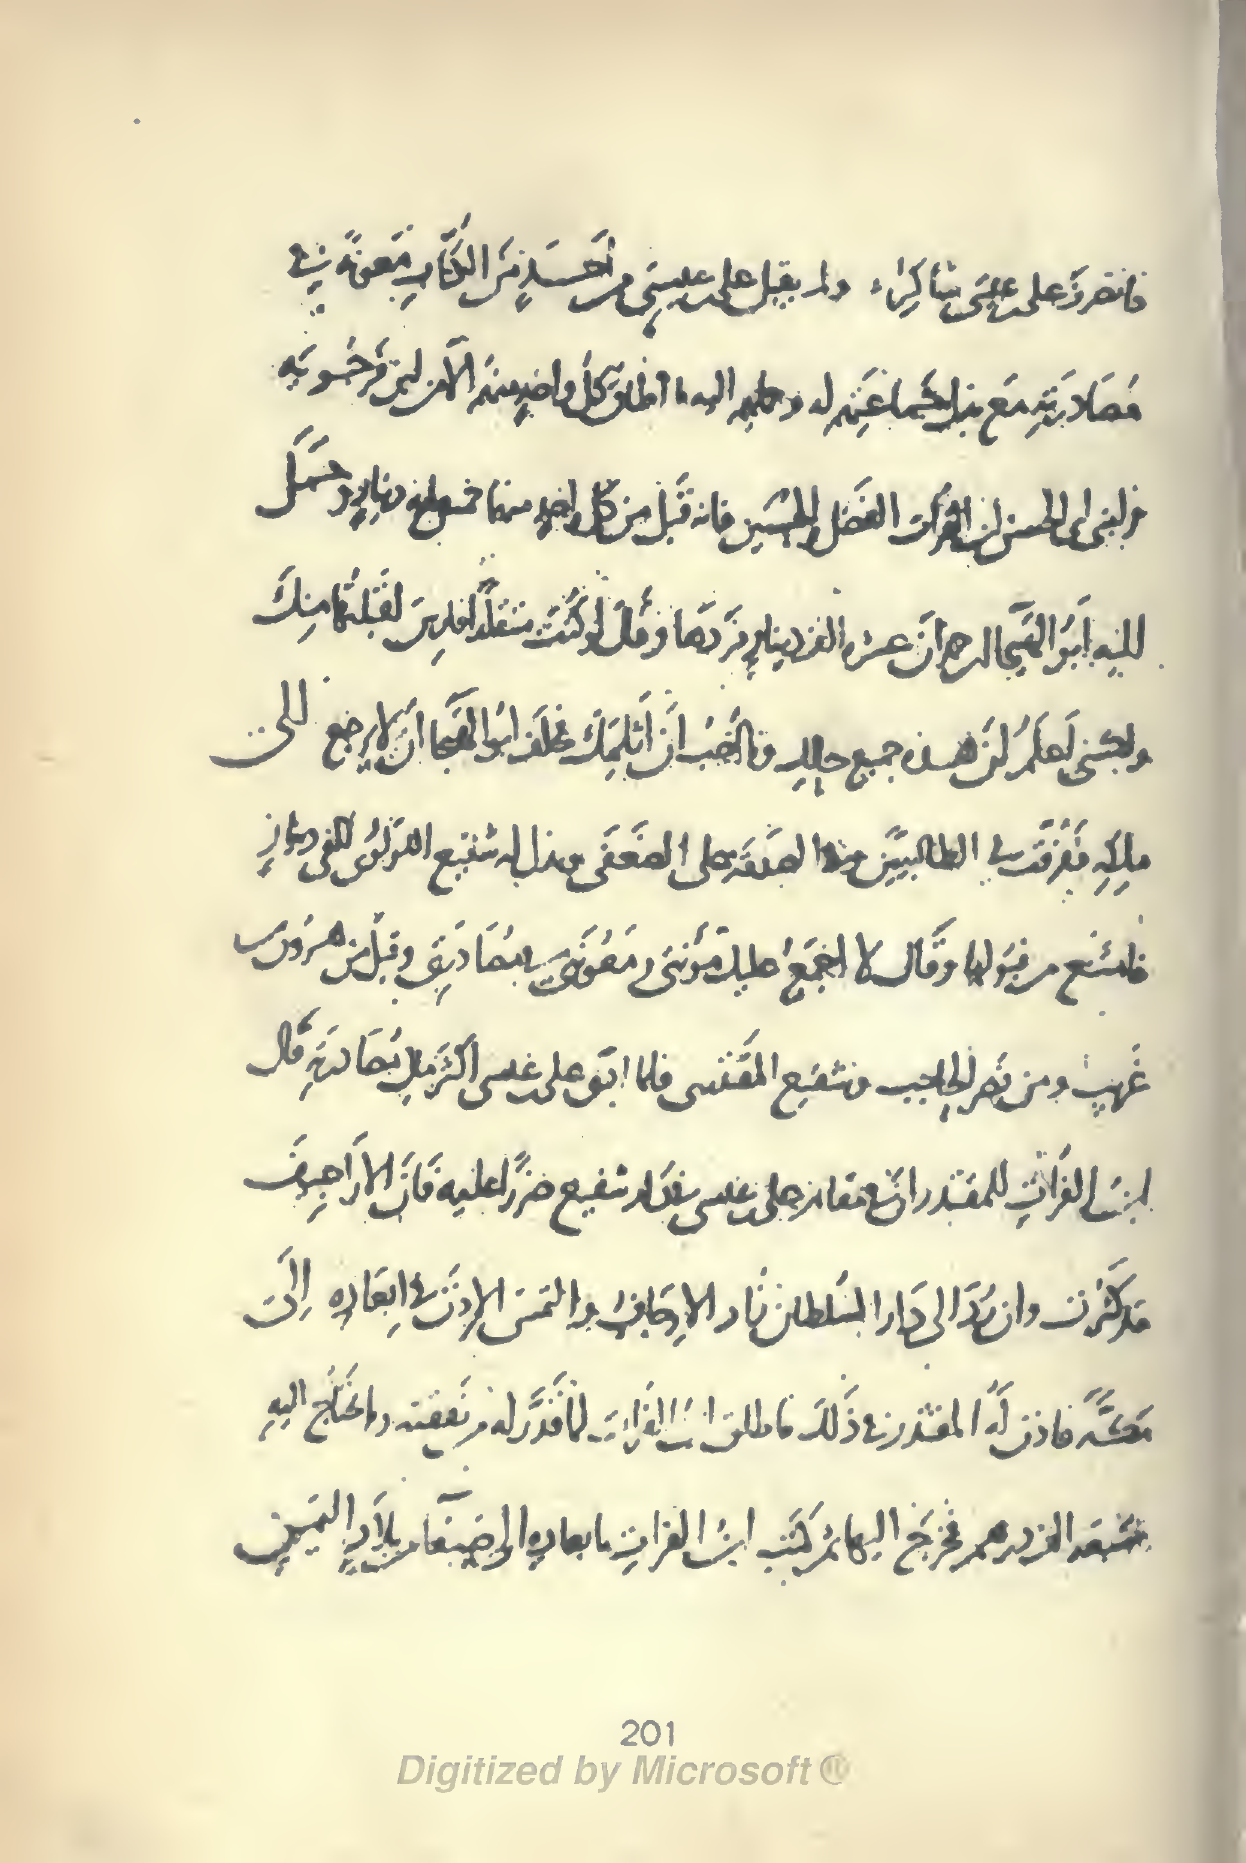 فانصرف علي بن عيسى شاكرا ولم يقبل علي بن عيسى من أحد من الكتاب معونة في
مصادرته مع بذل جماعتهم له وحملهم اليه ما اطاق كل واحد منهم الا من ابن فرجويه
وابنى ابى الحسن ابن الفرات الفضل والحسين فانه قبل من كل واحد منهما خمسمائة دينار وحمل
اليه أبو الهيجا بن حمدان عشرة الف دينار فردها وقال لو كنت متقلدا فارس لقبلتها منك
ولكنى أعلم أن هذه جميع حالك وما أحب ان أثلمك فحلف ابو الهيجا أن لا يرجع الى
ملكه ففرقت في الطالبيين وفى الصدقة على الضعفى وبذل له شفيع اللؤلؤى الفى دينار
فامتنع من قبولها وقال لا اجمع عليك مؤنتى ومعونتى في مصادرتى وقبل من هرون بن
غريب ومن نصر الحاجب وشفيع المقتدرى فلما ادى علي بن عيسى اكثر مال مصادرته قال
ابن الفرات للمقتدر ان في مقام علي بن عيسى في دار شفيع ضررا عليه فان الاراجيف
قد كثرت وان رد الى دار السلطان زاد الارجاف والتمس الاذن في ابعاده الى
مكة فاذن له المقتدر في ذلك فاطلق ابن الفرات لما قدر له من نفقته وما يحتاج اليه
سبعة الف درهم فخرج اليها ثم كتب ابن الفرات بابعاده الى صنعاء من بلاد اليمن
201
Digitized by Microsoft ®